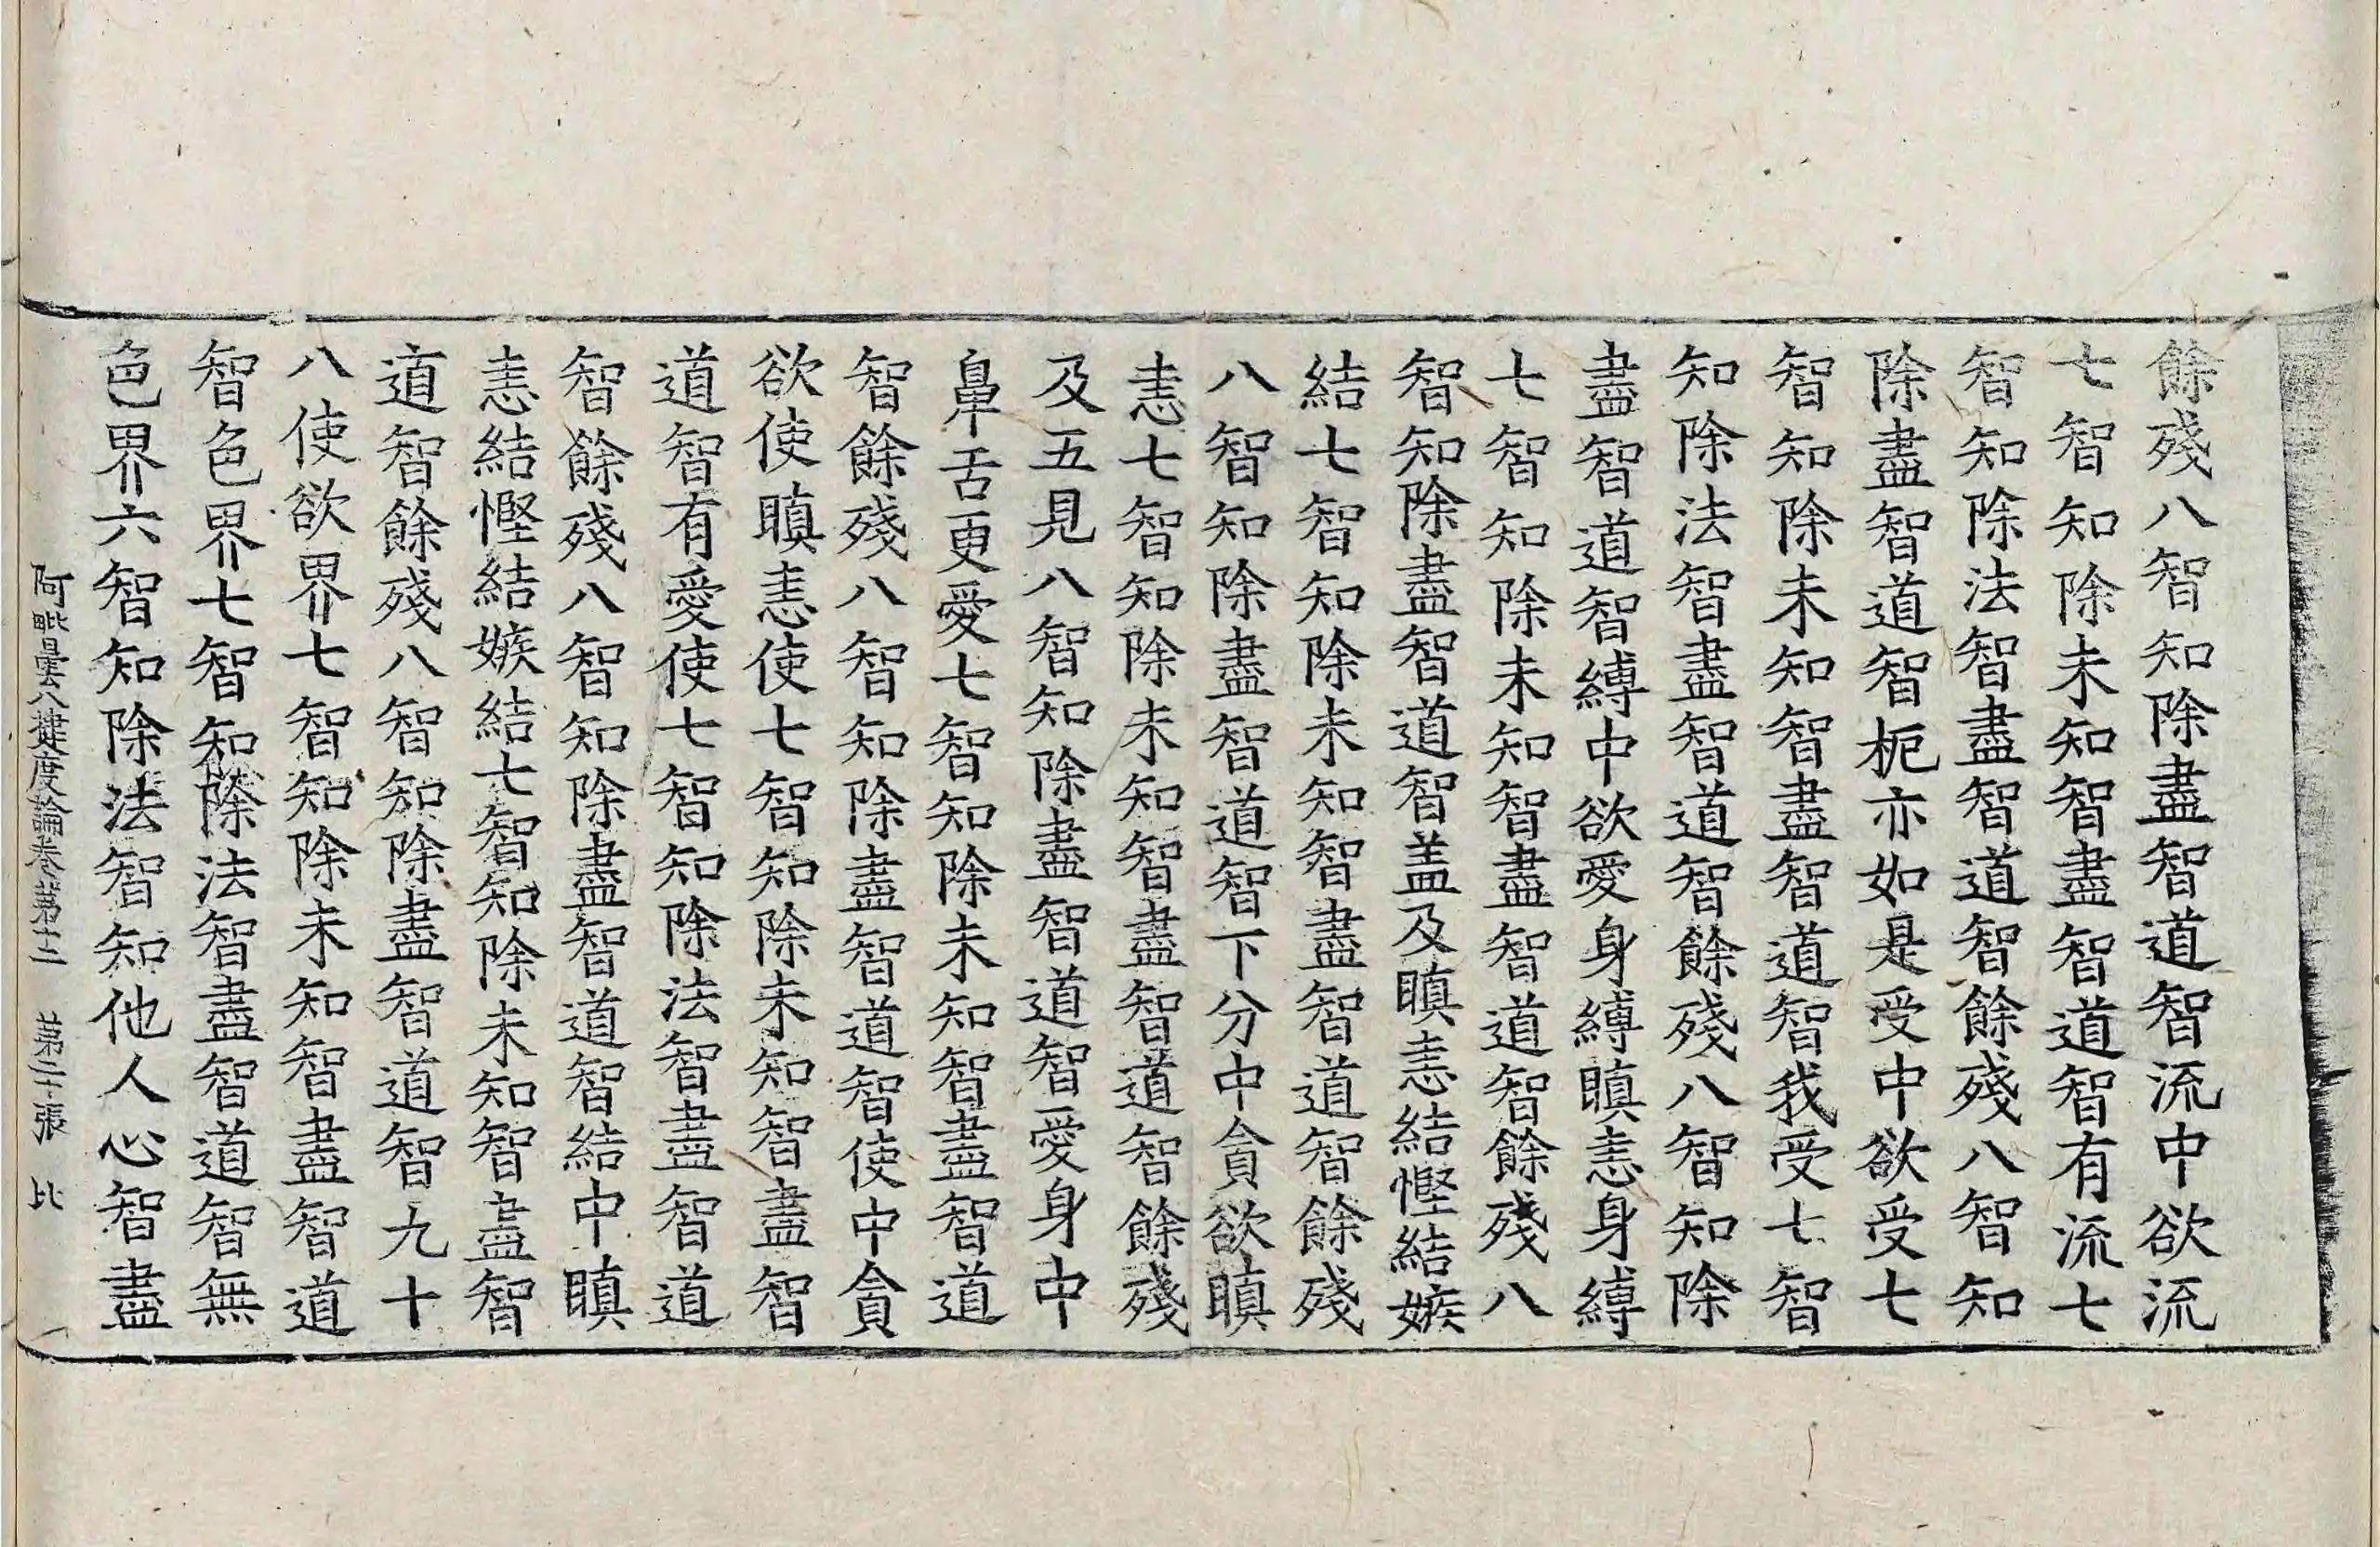 餘殘八智知除盡智道智流中欲流
七智知除未知智盡智道智有流七
智知除法智盡智道智餘殘八智知
除盡智道智枙亦如是受中欲受七
智知除未知智盡智道智我受七智
知除法智盡智道智餘殘八智知除
盡智道智縛中欲愛身縛瞋恚身縛
七智知除未知智盡智道智餘殘八
智知除盡智道智盖及瞋恚結慳結嫉
結七智知除未知智盡智道智餘殘
八智知除盡智道智下分中貪欲瞋
恚七智知除未知智盡智道智餘殘
及五見八智知除盡智道智愛身中
鼻舌更愛七智知除未知智盡智道
智餘殘八智知除盡智道智使中貪
欲使瞋恚使七智知除未知智盡智
道智有愛使七智知除法智盡智道
智餘殘八智知除盡智道智結中瞋
恚結慳結嫉結七智知除未知智盡智
道智餘殘八智知除盡智道智九十
八使欲界七智知除未知智盡智道
智色界七智知除法智盡智道智無
色界六智知除法智知他人心智盡
阿毗曇八揵度論卷苐十二　苐二十張　比